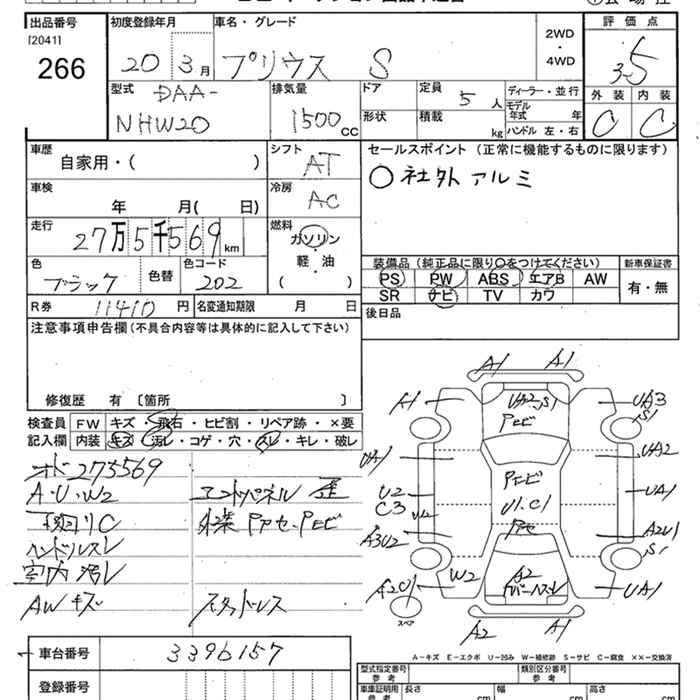 出品番号
[2041]
266
初度登録年月
20 3 月
車名・グレード
プリウス S
2WD
・
4WD
評価点
3.5
外装 内装
C C
型式
DAA-
NHW20
排気量
1500 CC
ドア
形状
定員 5 人
積載 kg
ディーラー・並行
モデル年式 年
ハンドル 左・右
車歴
自家用・( )
シフト
AT
セールスポイント (正常に機能するものに限ります)
○社外アルミ
車検
年 月( 日)
冷房
AC
走行
27万5千569 km
燃料
ガソリン
・
軽・油
( )
色
ブラック
色替
色コード
202
装備品 (純正品に限り○をつけてください)
PS PW ABS エアB AW
SR ナビ TV カワ
新車保証書
有・無
R券 11410 円
名変通知期限 月 日
後日品
注意事項申告欄(不具合内容等は具体的に記入して下さい)
修復歴 有 〔箇所 〕
検査員
記入欄
FW キズ・飛石・ヒビ割・リペア跡・×要
内装 キズ・汚レ・コゲ・穴・スレ・キレ・破レ
オド275569
A・U・W2
エンドパネル 歪
下回リC
外装 Pアセ、Pヒビ
ハンドルスレ
室内汚レ
AWキズ
スタッドレス
A1 A1
A1
UA2、S1
Pヒビ
UA3
S1
UA1
UA2
U2
C3
W2
Pヒビ
U1、C1
Pアセ
UA1
A3U2
A2U1
S1
A2C1
W2
A2
Rバンパースレ
UA1
スペア
A2 A1
A-キズ E-エクボ U-凹み W-補修跡 S-サビ C-腐食 ××-交換済
車台番号
3396157
登録番号
型式指定番号
参考
類別区分番号
参考
車庫証明用
参考
長さ cm
幅 cm
高さ cm